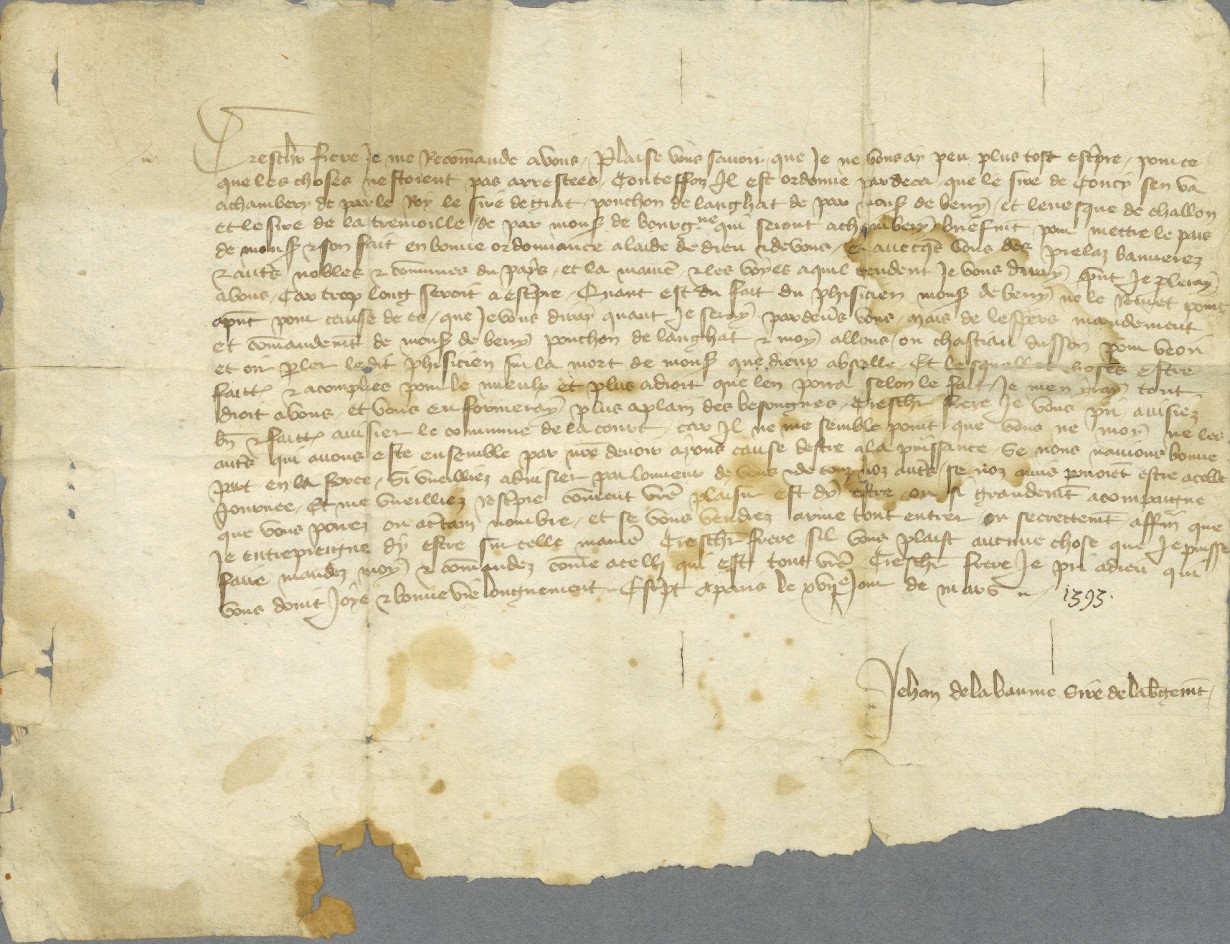 Treschr frere Je me Recomande a vous, Plaise vous savoir, que Je ne vous ay peu plus tost escpre, pour ce
que les choses nestoient pas arrestees, Toutesfoiz Il est ordonne par deca, que le sire de Coucy sen va
a chambery de par le Roy le sire de giat, ponchon de langhat de par mons de berry, et levesque de challon
et le sire de la tremoille, de par mons de bourgne qui seront a chambery briefmt pour mettre le pais
de mons & son fait en bonne ordonnance a laide de dieu & de vous, & avecqs vous des prelaz bannerez
& auts nobles & communes du pays, et la maniere & les voyes a quil tendent Je vous diray qnt Je pleray
a vous, Car trop long seroit a escpre, Quant est du fait du phisicien mons de berry ne le veult pour
apnt pour cause de ce, que Je vous diray quant Je seray par devs vous, mais de lespers mandement
et comandemt de mons de berry ponchon de langhat & moy allons, ou chastiau dusson pour veoir
et oir pler ledit phisicien sur la mort de mons que dieux absolle, Et lesquelles choses estre
faitt & acomplies pour le mieulx et plus a droit que len pora selon le fait, Je men iray tout
droit a vous, et vous enformeray plus a plain des besongnes, treschr frere Je vous pri avisiez
bn & faitt avisier le commune de la court, car Il ne me semble point que vous ne moy ne les
auts qui avons este ensemble par nre devoir ayons cause destre a la puissance Se nous navions bonne
part en la force, Si vuelliez adviser par lonneur de vous & de touz noz auts se noz amis porroiet estre a celle
Journee, Et me vueilliez Rescpre coment vre plaisir est dy estre, ou si grandemt acompaigne
que vous porrez ou a certain nombre, et se vous vendrez arme tout entrer ou secrettemt affin que
Je entrepreigne dy estre sur celle manie Treschr frere sil vous plaist aucune chose que Je puisse
faire mandez moy & comandez come a celli qui est tout vre Treschr frere Je pri a dieu qui
vous doint Joye & bonne vie longuement, Escpt a paris le xvije Jour de mars 1393.
Jehan de la baume Sire de labgemt